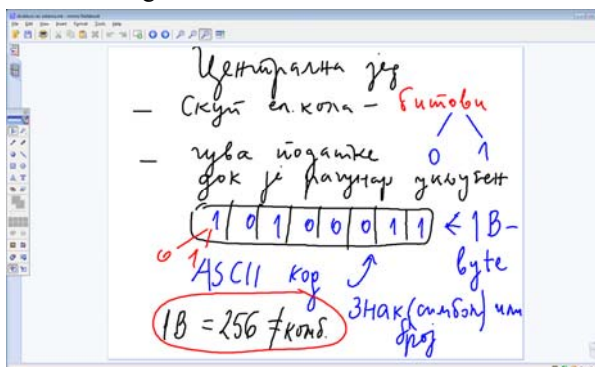 Централна јед
– Скуп ел. кола – битови
0 1
– чува податке
док је рачунар укључен
1 0 1 0 0 0 1 1 ← 1B –
byte
0 1
ASCII код
Знак (симбол) или
број
1B = 256 ≠ комб.